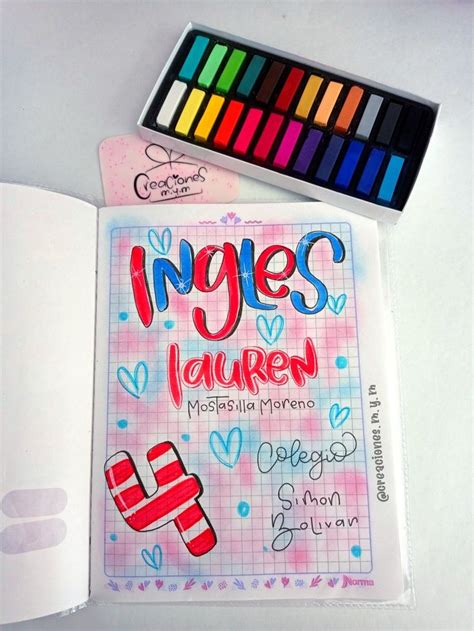 Creaciones
m.y.m
INgles
lauren
Mostasilla Moreno
Colegio
4
Simon
Bolivar
@creaciones.m.y.m
Norma